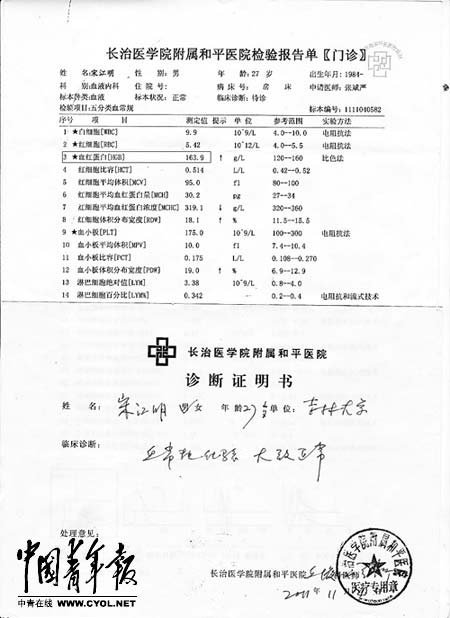 长治医学院附属和平医院检验报告单〖门诊〗
姓 名:宋江明 性 别:男 年 龄:27岁 出生年月:1984-
科 别:血液内科 住 院 号: 病 床 号: 房 床 申请医师:张斌严
标本种类:血液 标本状况: 正常 临床诊断:待诊 标本编号:1111040582
检验项目:五分类血常规
序号 项 目 测定值 提示 单 位 参考范围 实验方法
1 ★白细胞[WBC] 9.9 10^9/L 4.0--10.0 电阻抗法
2 ★红细胞[RBC] 5.42 10^12/L 4.0--5.5 电阻抗法
3 ★血红蛋白[HGB] 163.9 ↑ g/L 120--160 比色法
4 红细胞比容[HCT] 0.514 L/L 0.42--0.52
5 红细胞平均体积[MCV] 95.0 fl 80--100
6 红细胞平均血红蛋白量[MCH] 30.2 pg 27--34
7 红细胞平均血红蛋白浓度[MCHC] 319.1 ↓ g/L 320--360
8 红细胞体积分布宽度[RDW] 18.1 ↑ % 11.5--15.5
9 ★血小板[PLT] 175.0 10^9/L 100--300 电阻抗法
10 血小板平均体积[MPV] 10.0 fl 7.4--10.4
11 血小板比容[PCT] 0.175 L/L 0.108--0.270
12 血小板体积分布宽度[PDW] 19.0 ↑ % 6.9--12.9
13 淋巴细胞绝对值[LYM] 3.38 10^9/L 0.8--4.0
14 淋巴细胞百分比[LYM%] 0.342 0.2--0.4 电阻抗和流式技术
长治医学院附属和平医院
诊断证明书
姓 名: 宋江明 男女 年 龄 27 岁 单位: 吉林大学
临床诊断:
正常 大致正常
处理意见:
中国青年报
中青在线 WWW.CYOL.NET
长治医学院附属和平医院
2011 11
长治医学院附属和平医院
医疗专用章